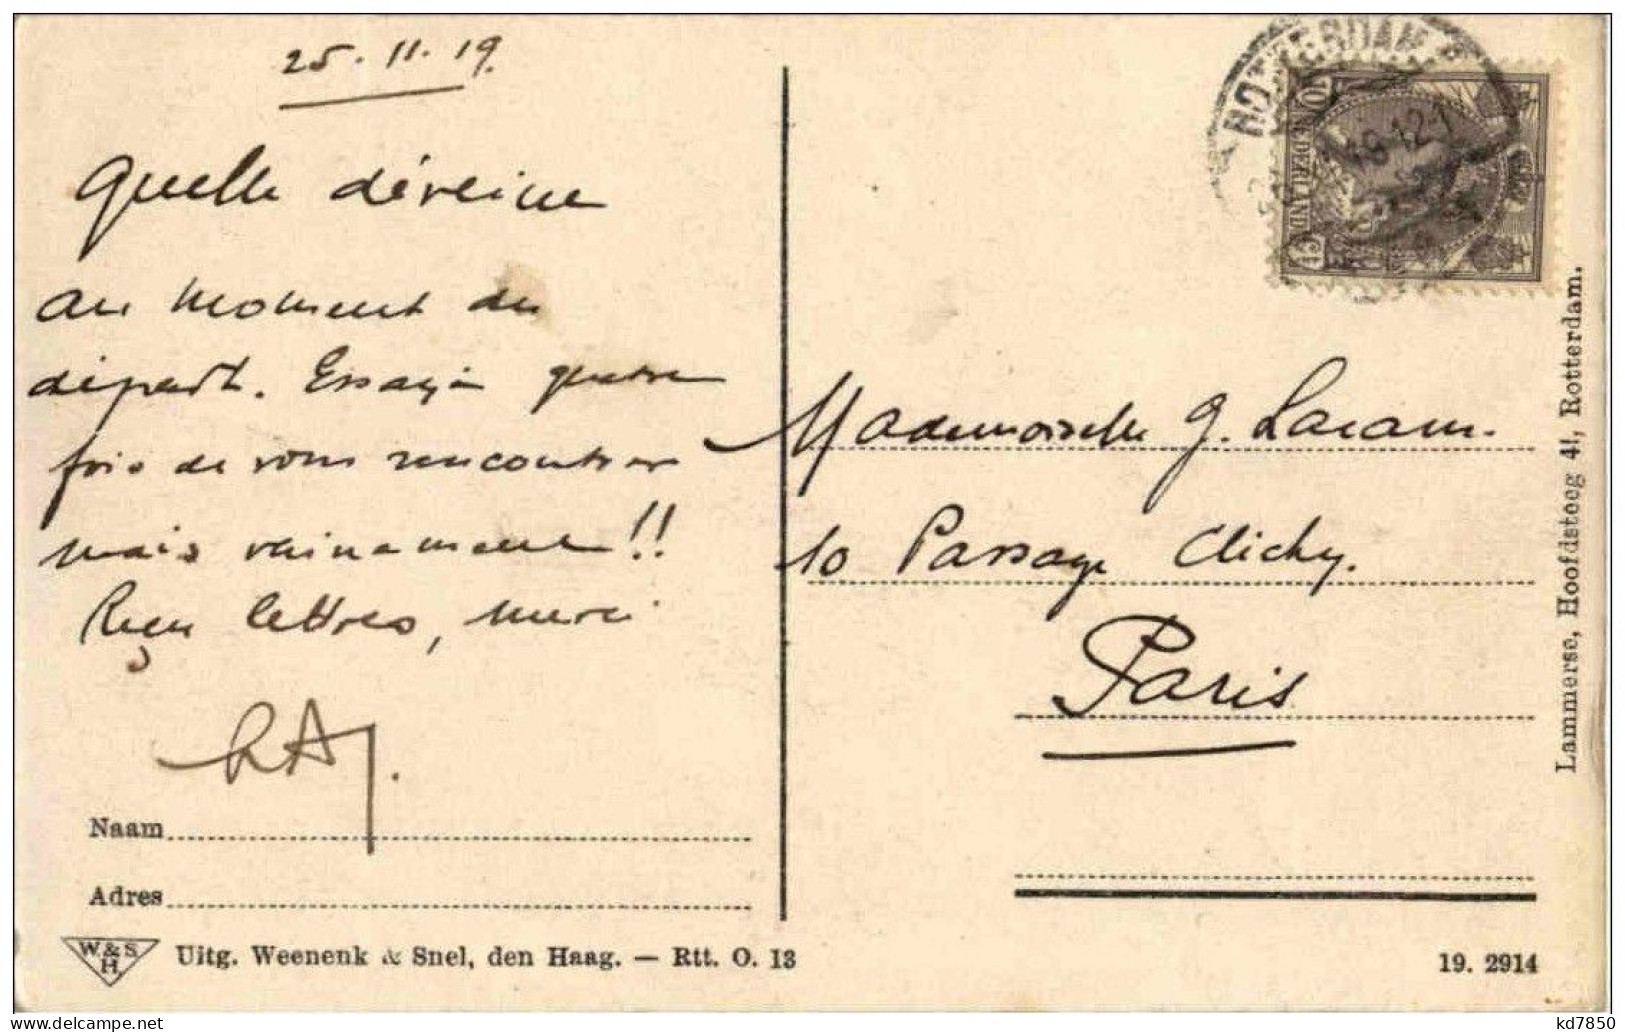 25.11.19.
Quelle déveine
au moment du
départ. Essayé quatre
fois de vous rencontrer
mais vainement!!
Reçu lettres, merci
Naam
Adres
W. & S.
H
Uitg. Weenenk & Snel, den Haag. — Rtt. O. 13
ROTTERDAM
NEDERLAND
Mademoiselle G. Lacam.
10 Passage Clichy.
Paris
Lammerse, Hoofdsteeg 41, Rotterdam.
19. 2914
kd7850